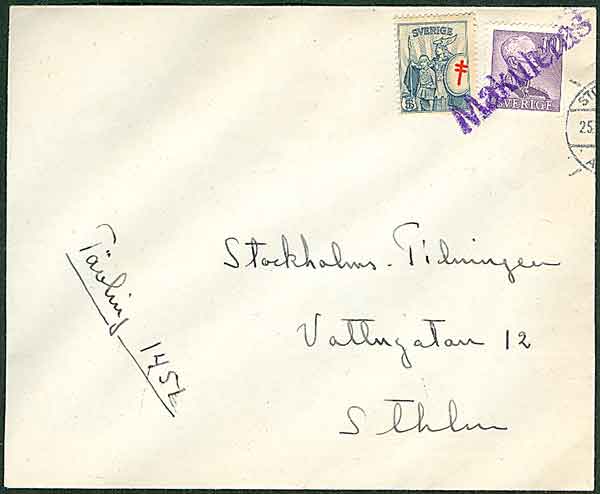 SVERIGE
5
SVERIGE
Makulerat
STO
25.
A
Stockholms-Tidningen
Vattugatan 12
Sthlm
Tävling 1452